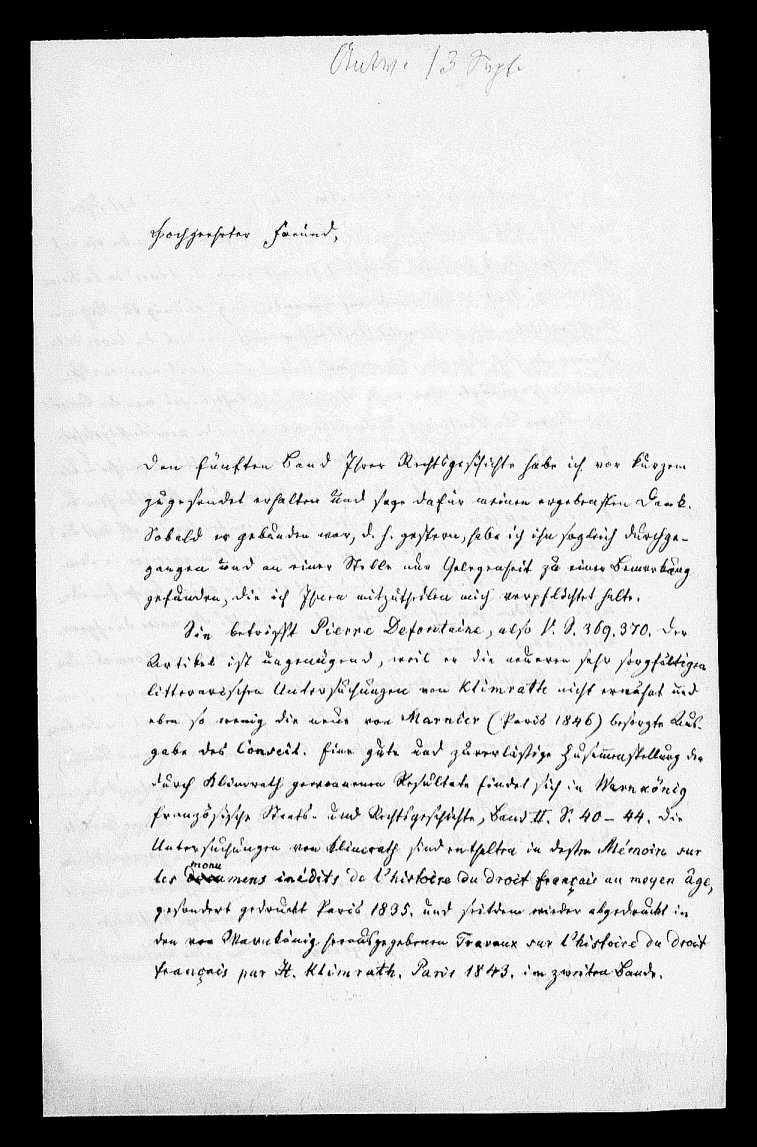 Antw. 13 Sept.
Hochgeehrter Freund,
Den fünften Band Ihrer Rechtsgeschichte habe ich vor kurzem
zugesendet erhalten und sage dafür meinen ergebensten Dank.
Sobald er gebunden war, d. h. gestern, habe ich ihn sogleich durchge-
gangen und an einer Stelle nur Gelegenheit zu einer Bemerkung
gefunden, die ich Ihnen mitzutheilen mich verpflichtet halte.
Sie betrifft Pierre Defontaine, also V. S. 369. 370. Der
Artikel ist ungenügend, weil er die neueren sehr sorgfältigen
litterarischen Untersuchungen von Klimrath nicht erwähnt und
eben so wenig die neue von Marnier (Paris 1846) besorgte Aus-
gabe des Conseil. Eine gute und zuverlässige Zusammenstellung der
durch Klimrath gewonnenen Resultate findet sich in Warnkönig
französische Staats- und Rechtsgeschichte, Band II. S. 40 - 44. Die
Untersuchungen von Klimrath sind enthalten in dessen Mémoire sur
les monumens inédits de l'histoire du droit français au moyen âge,
gesondert gedruckt Paris 1835. und seitdem wieder abgedruckt in
den von Warnkönig herausgegebenen Travaux sur l'histoire du droit
français par H. Klimrath. Paris 1843. im zweiten Bande.